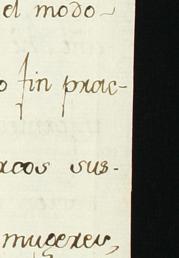 el modo
o fin prac-
rcos sus-
mugeres,